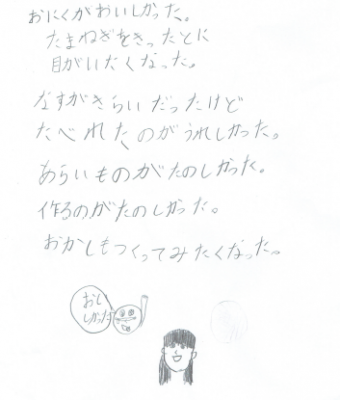 おにくがおいしかった。
たまねぎをきったとに
目がいたくなった。
なすがきらいだったけど
たべれたのがうれしかった。
あらいものがたのしかった。
作るのがたのしかった。
おかしもつくってみたくなった。
おい
しかった